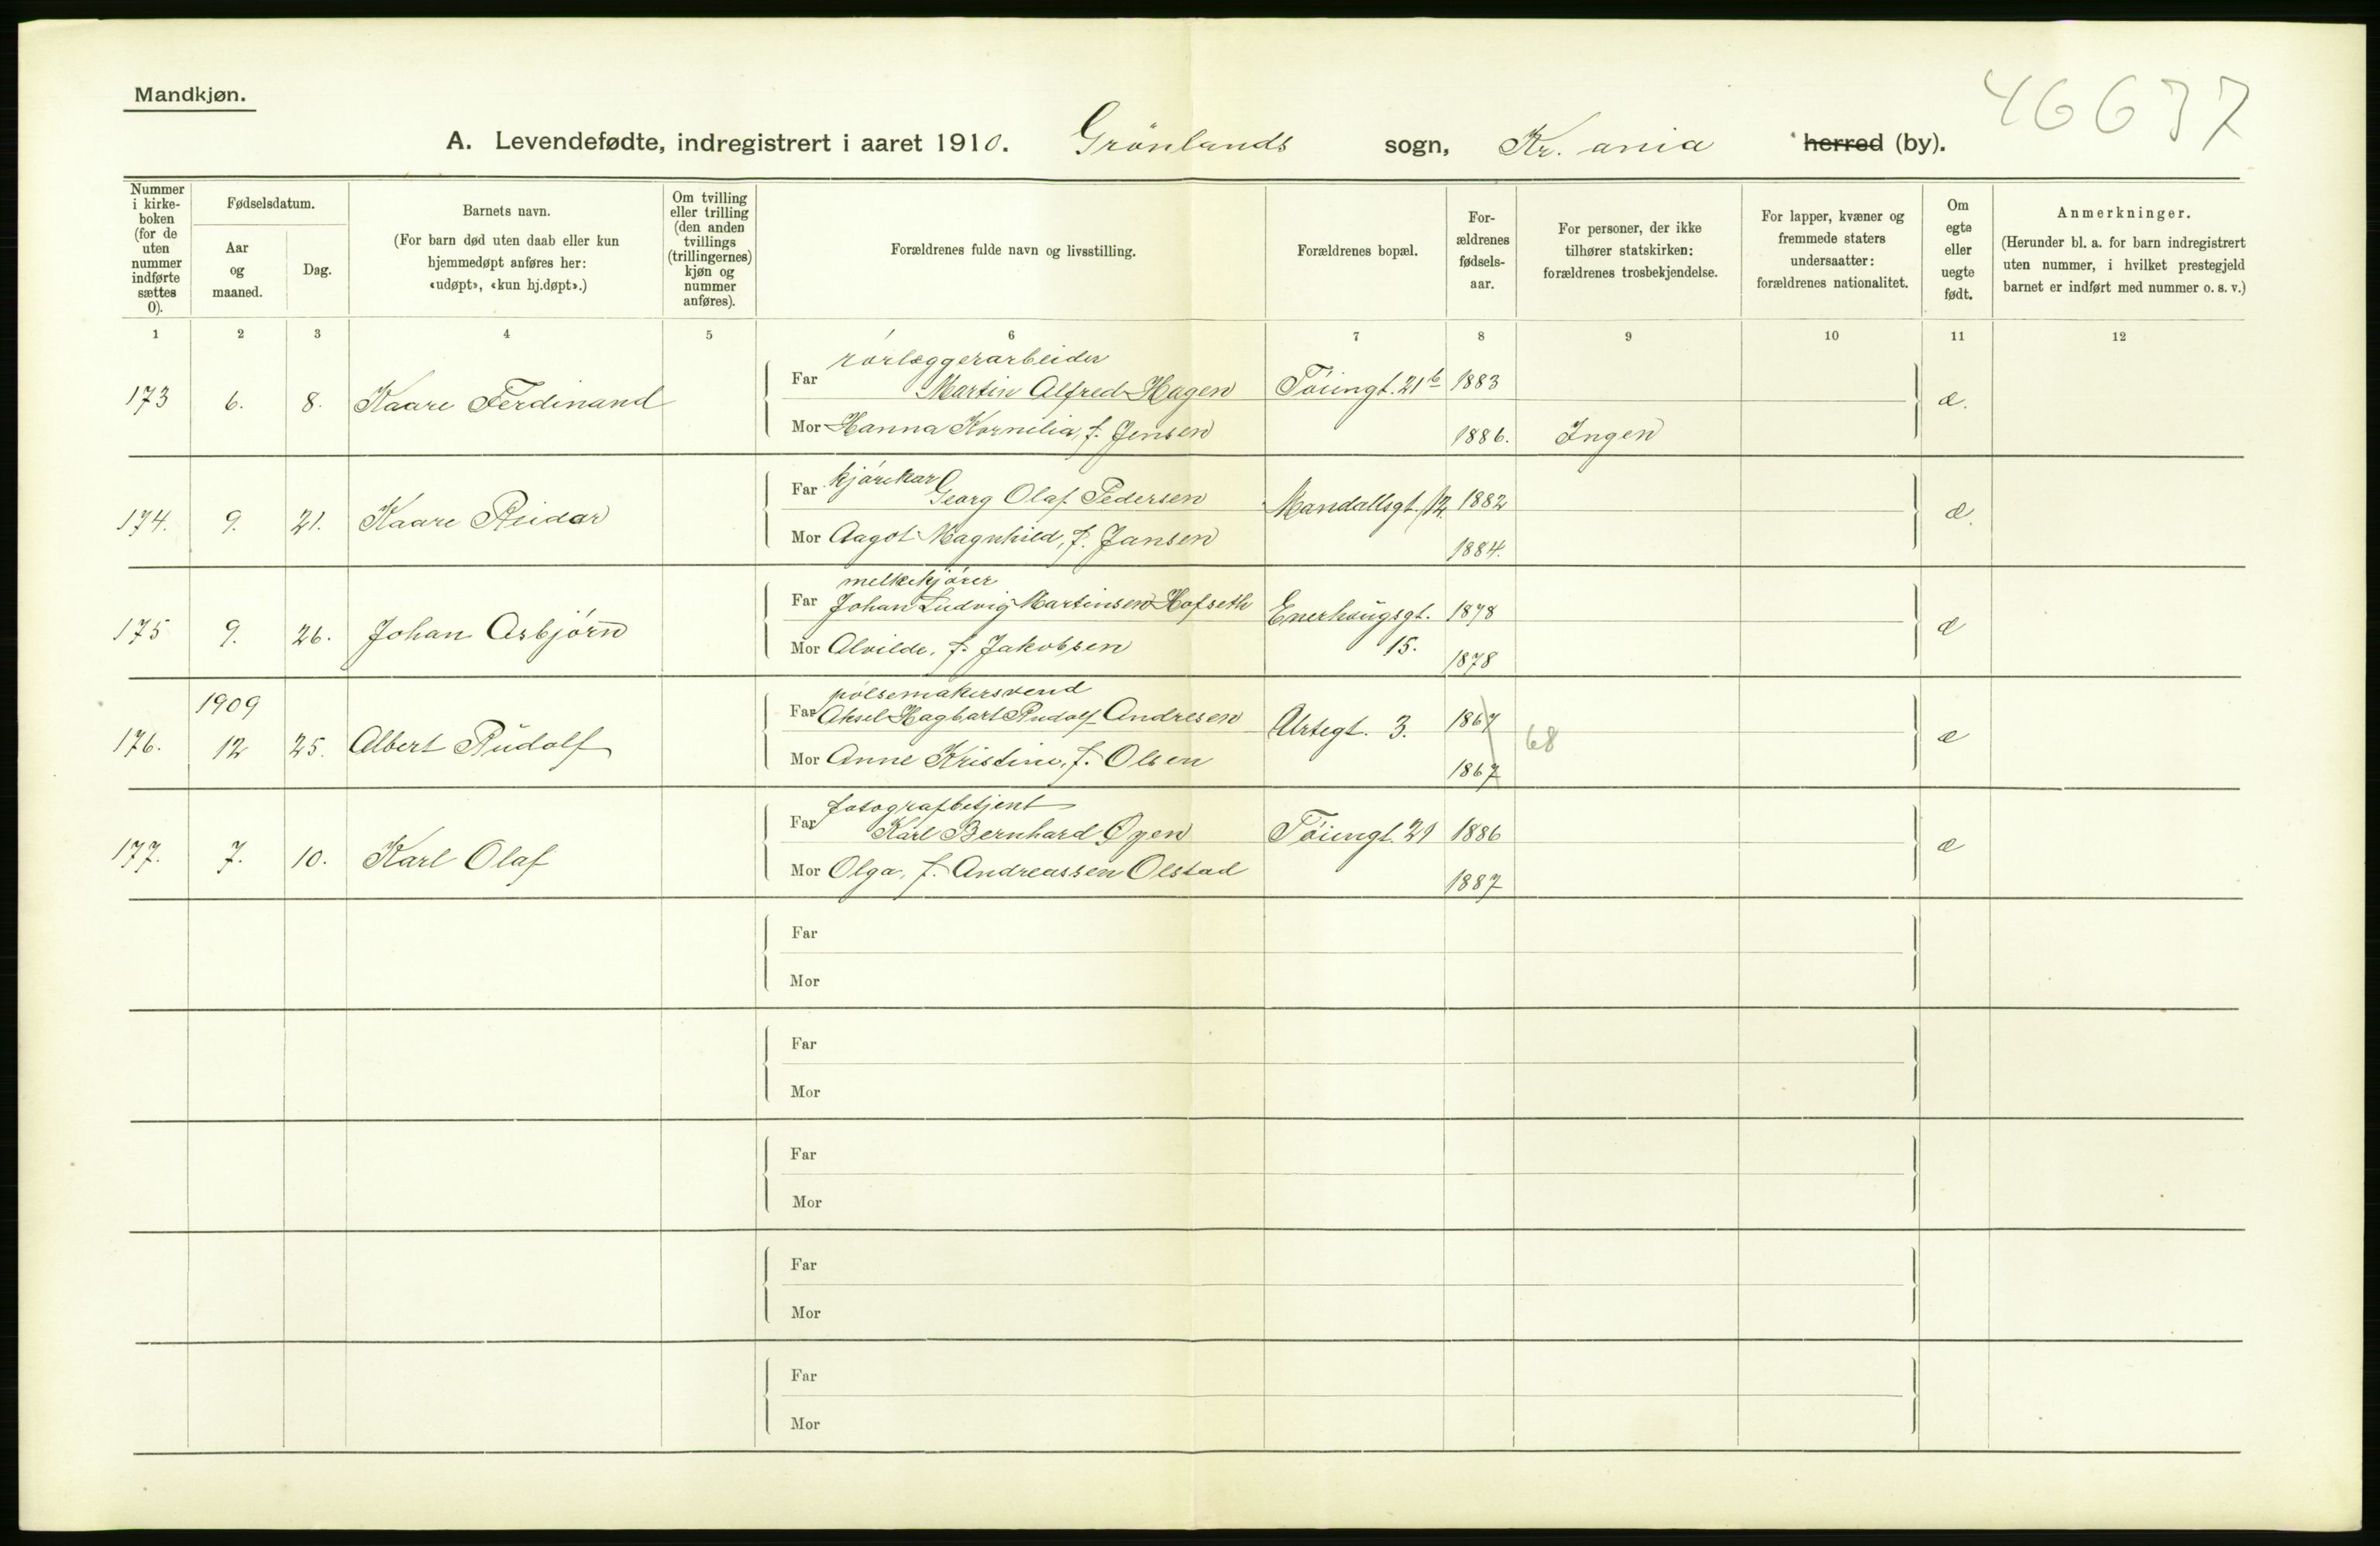 Mandkjøn.
46637
A. Levendefødte, indregistrert i aaret 1910. Grønlands sogn, Kr.ania herred (by).
Nummer i kirkeboken (for de uten nummer indførte sættes 0).
Fødselsdatum.
Aar og maaned.
Dag.
Barnets navn.
(For barn død uten daab eller kun hjemmedøpt anføres her: «udøpt», «kun hj.døpt».)
Om tvilling eller trilling (den anden tvillings (trillingernes) kjøn og nummer anføres).
Forældrenes fulde navn og livsstilling.
Forældrenes bopæl.
For-ældrenes fødsels-aar.
For personer, der ikke tilhører statskirken: forældrenes trosbekjendelse.
For lapper, kvæner og fremmede staters undersaatter: forældrenes nationalitet.
Om egte eller uegte født.
Anmerkninger.
(Herunder bl. a. for barn indregistrert uten nummer, i hvilket prestegjeld barnet er indført med nummer o. s. v.)
1 2 3 4 5 6 7 8 9 10 11 12
rørlæggerarbeider
173 6. 8. Kaare Ferdinand Far Martin Alfred Hagen Tøiengt. 21b 1883 æ.
Mor Hanna Kornelia, f. Jensen 1886. Ingen
kjørekar
174. 9. 21. Kaare Reidar Far Georg Olaf Pedersen Mandallsgt. 12. 1882 æ.
Mor Aagot Magnhild, f. Jansen 1884.
melkekjører
175 9. 26. Johan Asbjørn Far Johan Ludvig Martinsen Hofseth Enerhaugsgt. 15. 1878 æ
Mor Alvilde, f. Jakobsen 1878
1909
pølsemakersvend
176. 12 25. Albert Rudolf Far Aksel Hagbart Rudolf Andresen Urtegt. 3. 1867 68 æ
Mor Anne Kristine, f. Olsen 1867
fotografbetjent
177. 7. 10. Karl Olaf Far Karl Bernhard Øyen Tøiengt. 21 1886 æ
Mor Olga, f. Andreassen Olstad 1887
Far
Mor
Far
Mor
Far
Mor
Far
Mor
Far
Mor